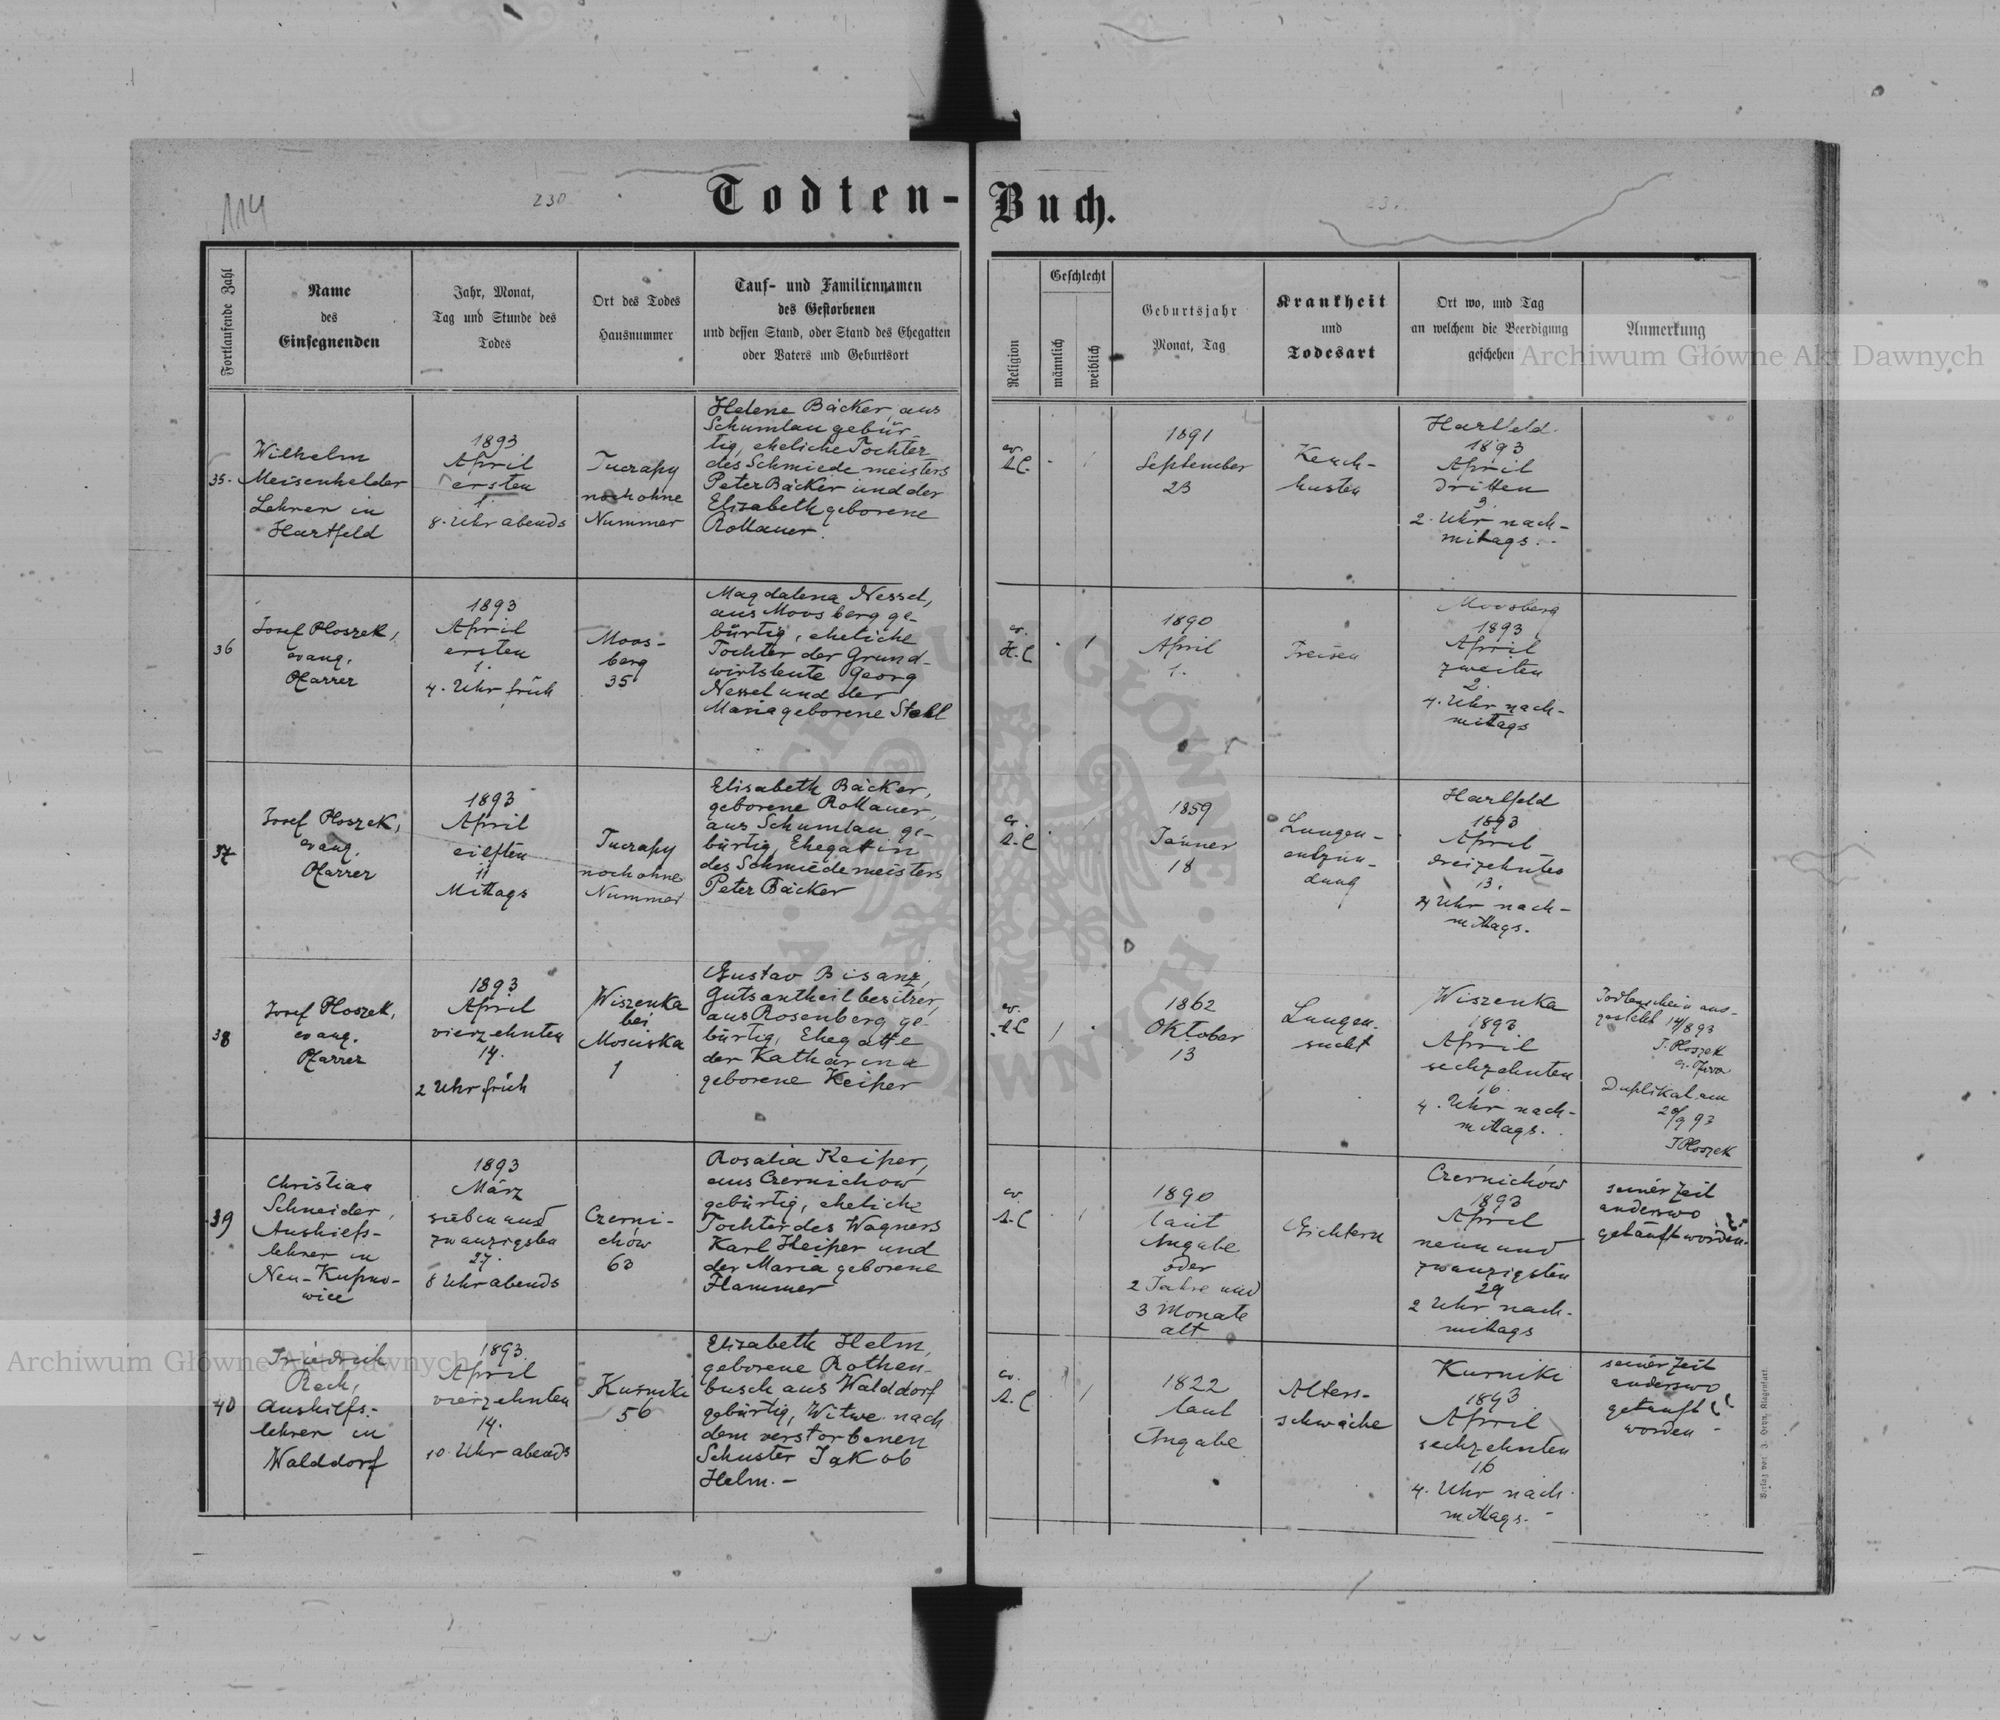 114
230
231.
Todten-Buch.
Fortlaufende Zahl
Name
des
Einsegnenden
Jahr, Monat,
Tag und Stunde des
Todes
Ort des Todes
Hausnummer
Tauf- und Familiennamen
des Gestorbenen
und dessen Stand, oder Stand des Ehegatten
oder Vaters und Geburtsort
Religion
Geschlecht
männlich
weiblich
Geburtsjahr
Monat, Tag
Krankheit
und
Todesart
Ort wo, und Tag
an welchem die Beerdigung
geschehen
Anmerkung
Archiwum Główne Akt Dawnych
35.
Wilhelm
Meisenhelder
Lehrer in
Hartfeld
1893
April
ersten
1.
8. Uhr abends
Tucrapy
noch ohne
Nummer
Helene Bäcker, aus
Schumlau gebür-
tig, eheliche Tochter
des Schmiedemeisters
Peter Bäcker und der
Elisabeth geborene
Rollauer.
ev.
A.C.
-
1
1891
September
23
Keuch-
husten
Hartfeld.
1893
April
dritten
3.
2. Uhr nach-
mittags.-
36
Josef Ploszek,
evang.
Pfarrer
1893
April
ersten
1.
4. Uhr früh
Moos-
berg
35
Magdalena Nessel,
aus Moosberg ge-
bürtig, eheliche
Tochter der Grund-
wirtsleute Georg
Nessel und der
Maria geborene Stahl
ev.
H.C
-
1
1890
April
1.
Freisen
Moosberg
1893
April
zweiten
2.
4. Uhr nach-
mittags
37
Josef Ploszek,
evang.
Pfarrer
1893
April
eilften
11
Mittags
Tucrapy
noch ohne
Nummer
Elisabeth Bäcker,
geborene Rollauer,
aus Schumlau ge-
bürtig, Ehegattin
des Schmiedemeisters
Peter Bäcker
ev.
A.C
-
1
1859
Jänner
18
Lungen-
entzün-
dung
Hartfeld
1893
April
dreizehnten
13.
4 Uhr nach-
mittags.
38
Josef Ploszek,
evang.
Pfarrer
1893
April
vierzehnten
14.
2 Uhr früh
Wiszenka
bei
Mosciska
1
Gustav Bisanz,
Gutsantheilbesitzer,
aus Rosenberg ge-
bürtig, Ehegatte
der Katharina
geborene Keiper
ev.
A.C
1
-
1862
Oktober
13
Lungen-
sucht
Wiszenka
1893
April
sechzehnten
16.
4. Uhr nach-
mittags.
Todtenschein aus-
gestellt 14/893
J. Ploszek
Duplikat am
20/9 93
J Ploszek
39
Christian
Schneider,
Aushilfs-
lehrer in
Neu-Kupno-
wice
1893
März
sieben und
zwanzigsten
27.
8 Uhr abends
Czerni-
chów
63
Rosalia Keiper,
aus Czernichow
gebürtig, eheliche
Tochter des Wagners
Karl Keiper und
der Maria geborene
Flammer
ev.
A.C
-
1
1890
laut
Angabe
oder
2 Jahre und
3 Monate
alt
Gichtern
Czernichów
1893
April
neun und
zwanzigsten
29
2 Uhr nach-
mittags
seiner Zeit
anderswo
getauft worden.
40
Friedrich
Rech,
Aushilfs-
lehrer in
Walddorf
1893
April
vierzehnten
14.
10. Uhr abends
Kurniki
56
Elisabeth Helm,
geborene Rothen-
busch aus Walddorf
gebürtig, Witwe nach
dem verstorbenen
Schuster Jakob
Helm.-
ev.
A.C
1
1822
laut
Angabe
Alters-
schwäche
Kurniki
1893
April
sechzehnten
16
4. Uhr nach-
mittags.-
seiner Zeit
anderswo
getauft
worden -
Archiwum Główne Akt Dawnych
ARCHIWUM GŁÓWNE AKT DAWNYCH